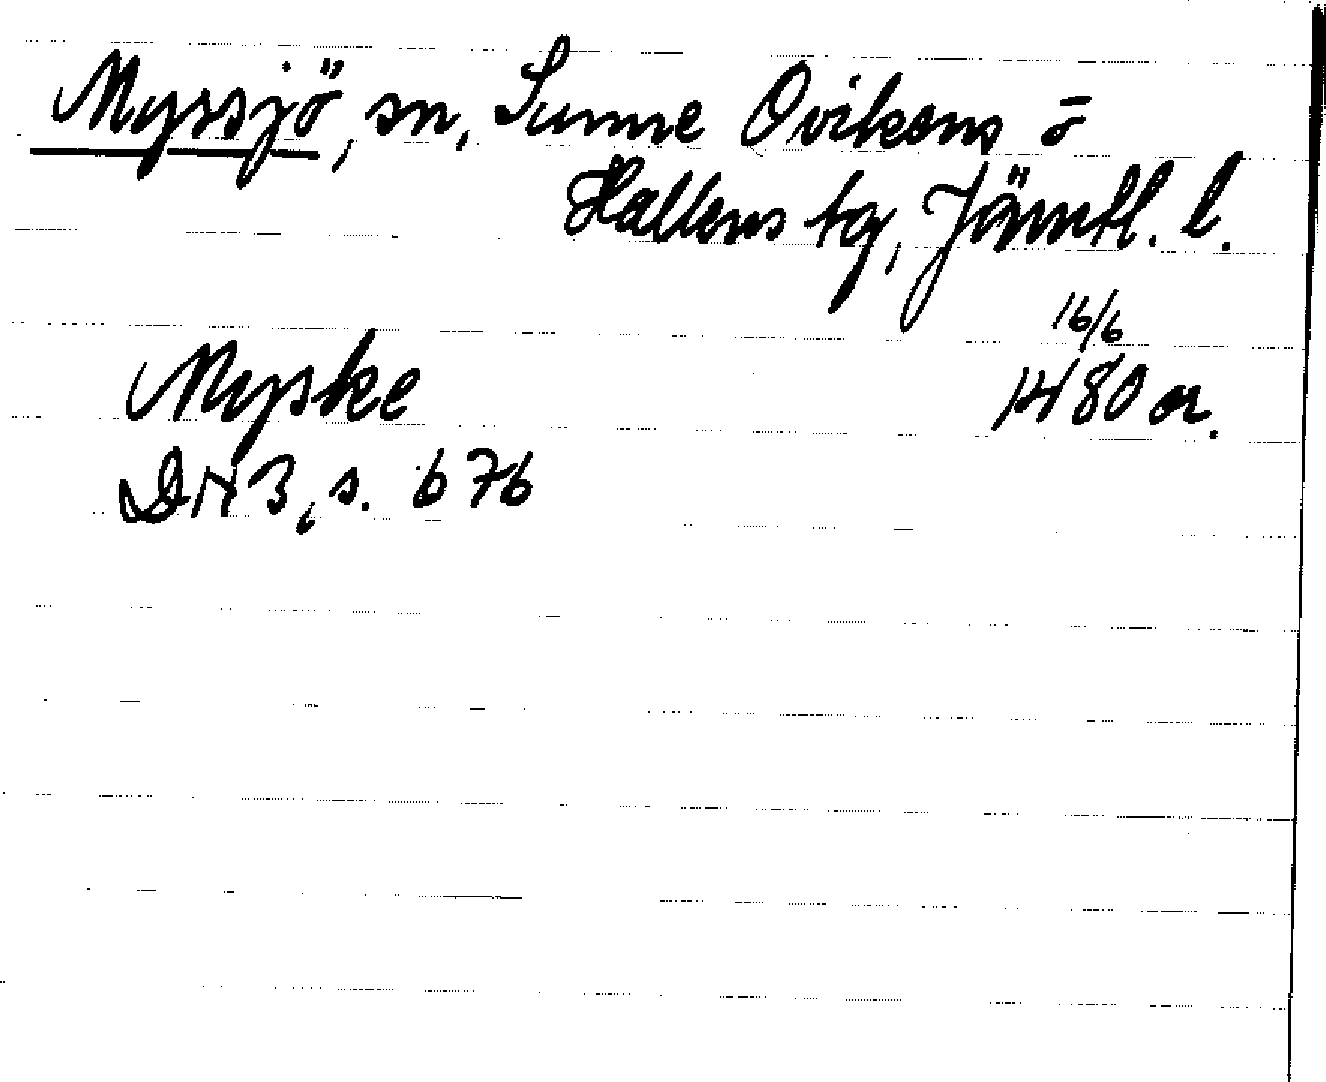 Myssjö, sn, Sunne Ovikens o
Hallens tg, Jämtl. l.
16/6
Myske 1480 or.
DN 3, s. 676